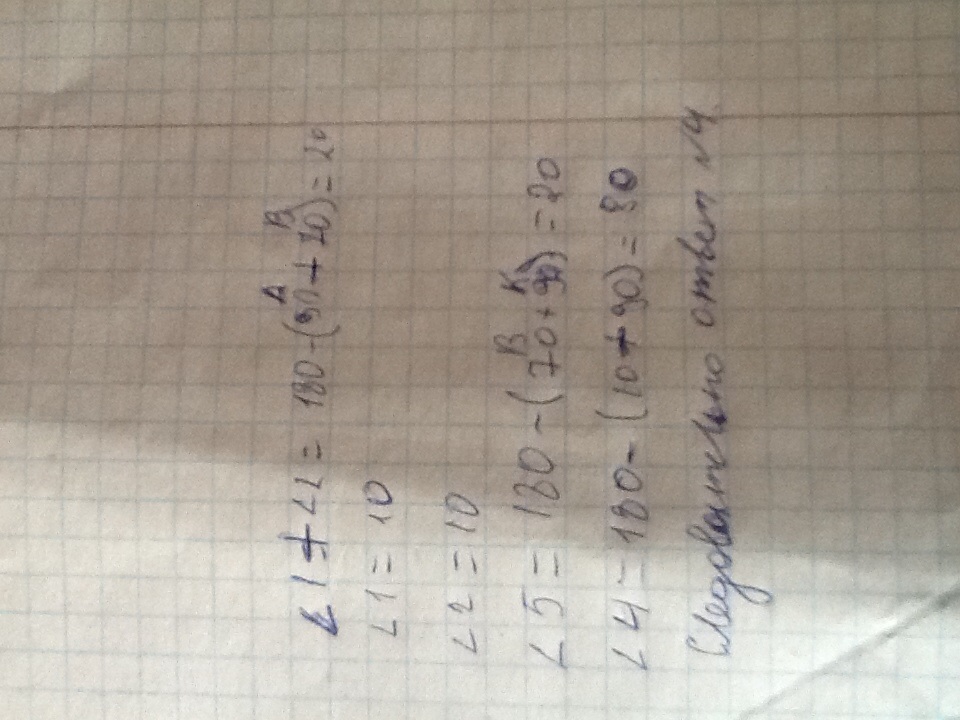 ∠1 + ∠2 = 180 - (90 + 70) = 20
A B
∠1 = 10
∠2 = 10
∠5 = 180 - (70 + 90) = 20
B K
∠4 = 180 - (10 + 90) = 80
Следовательно ответ №4